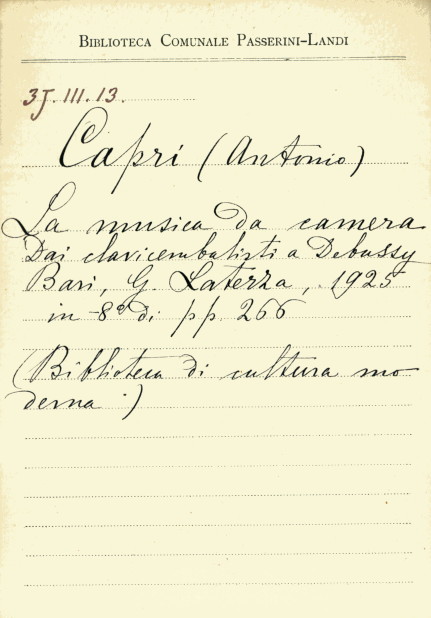 BIBLIOTECA COMUNALE PASSERINI-LANDI
3J.III.13.
Capri (Antonio)
La musica da camera
Dai clavicembalisti a Debussy
Bari, G. Laterza, 1925
in-8º di pp. 266
(Biblioteca di cultura mo
derna.)